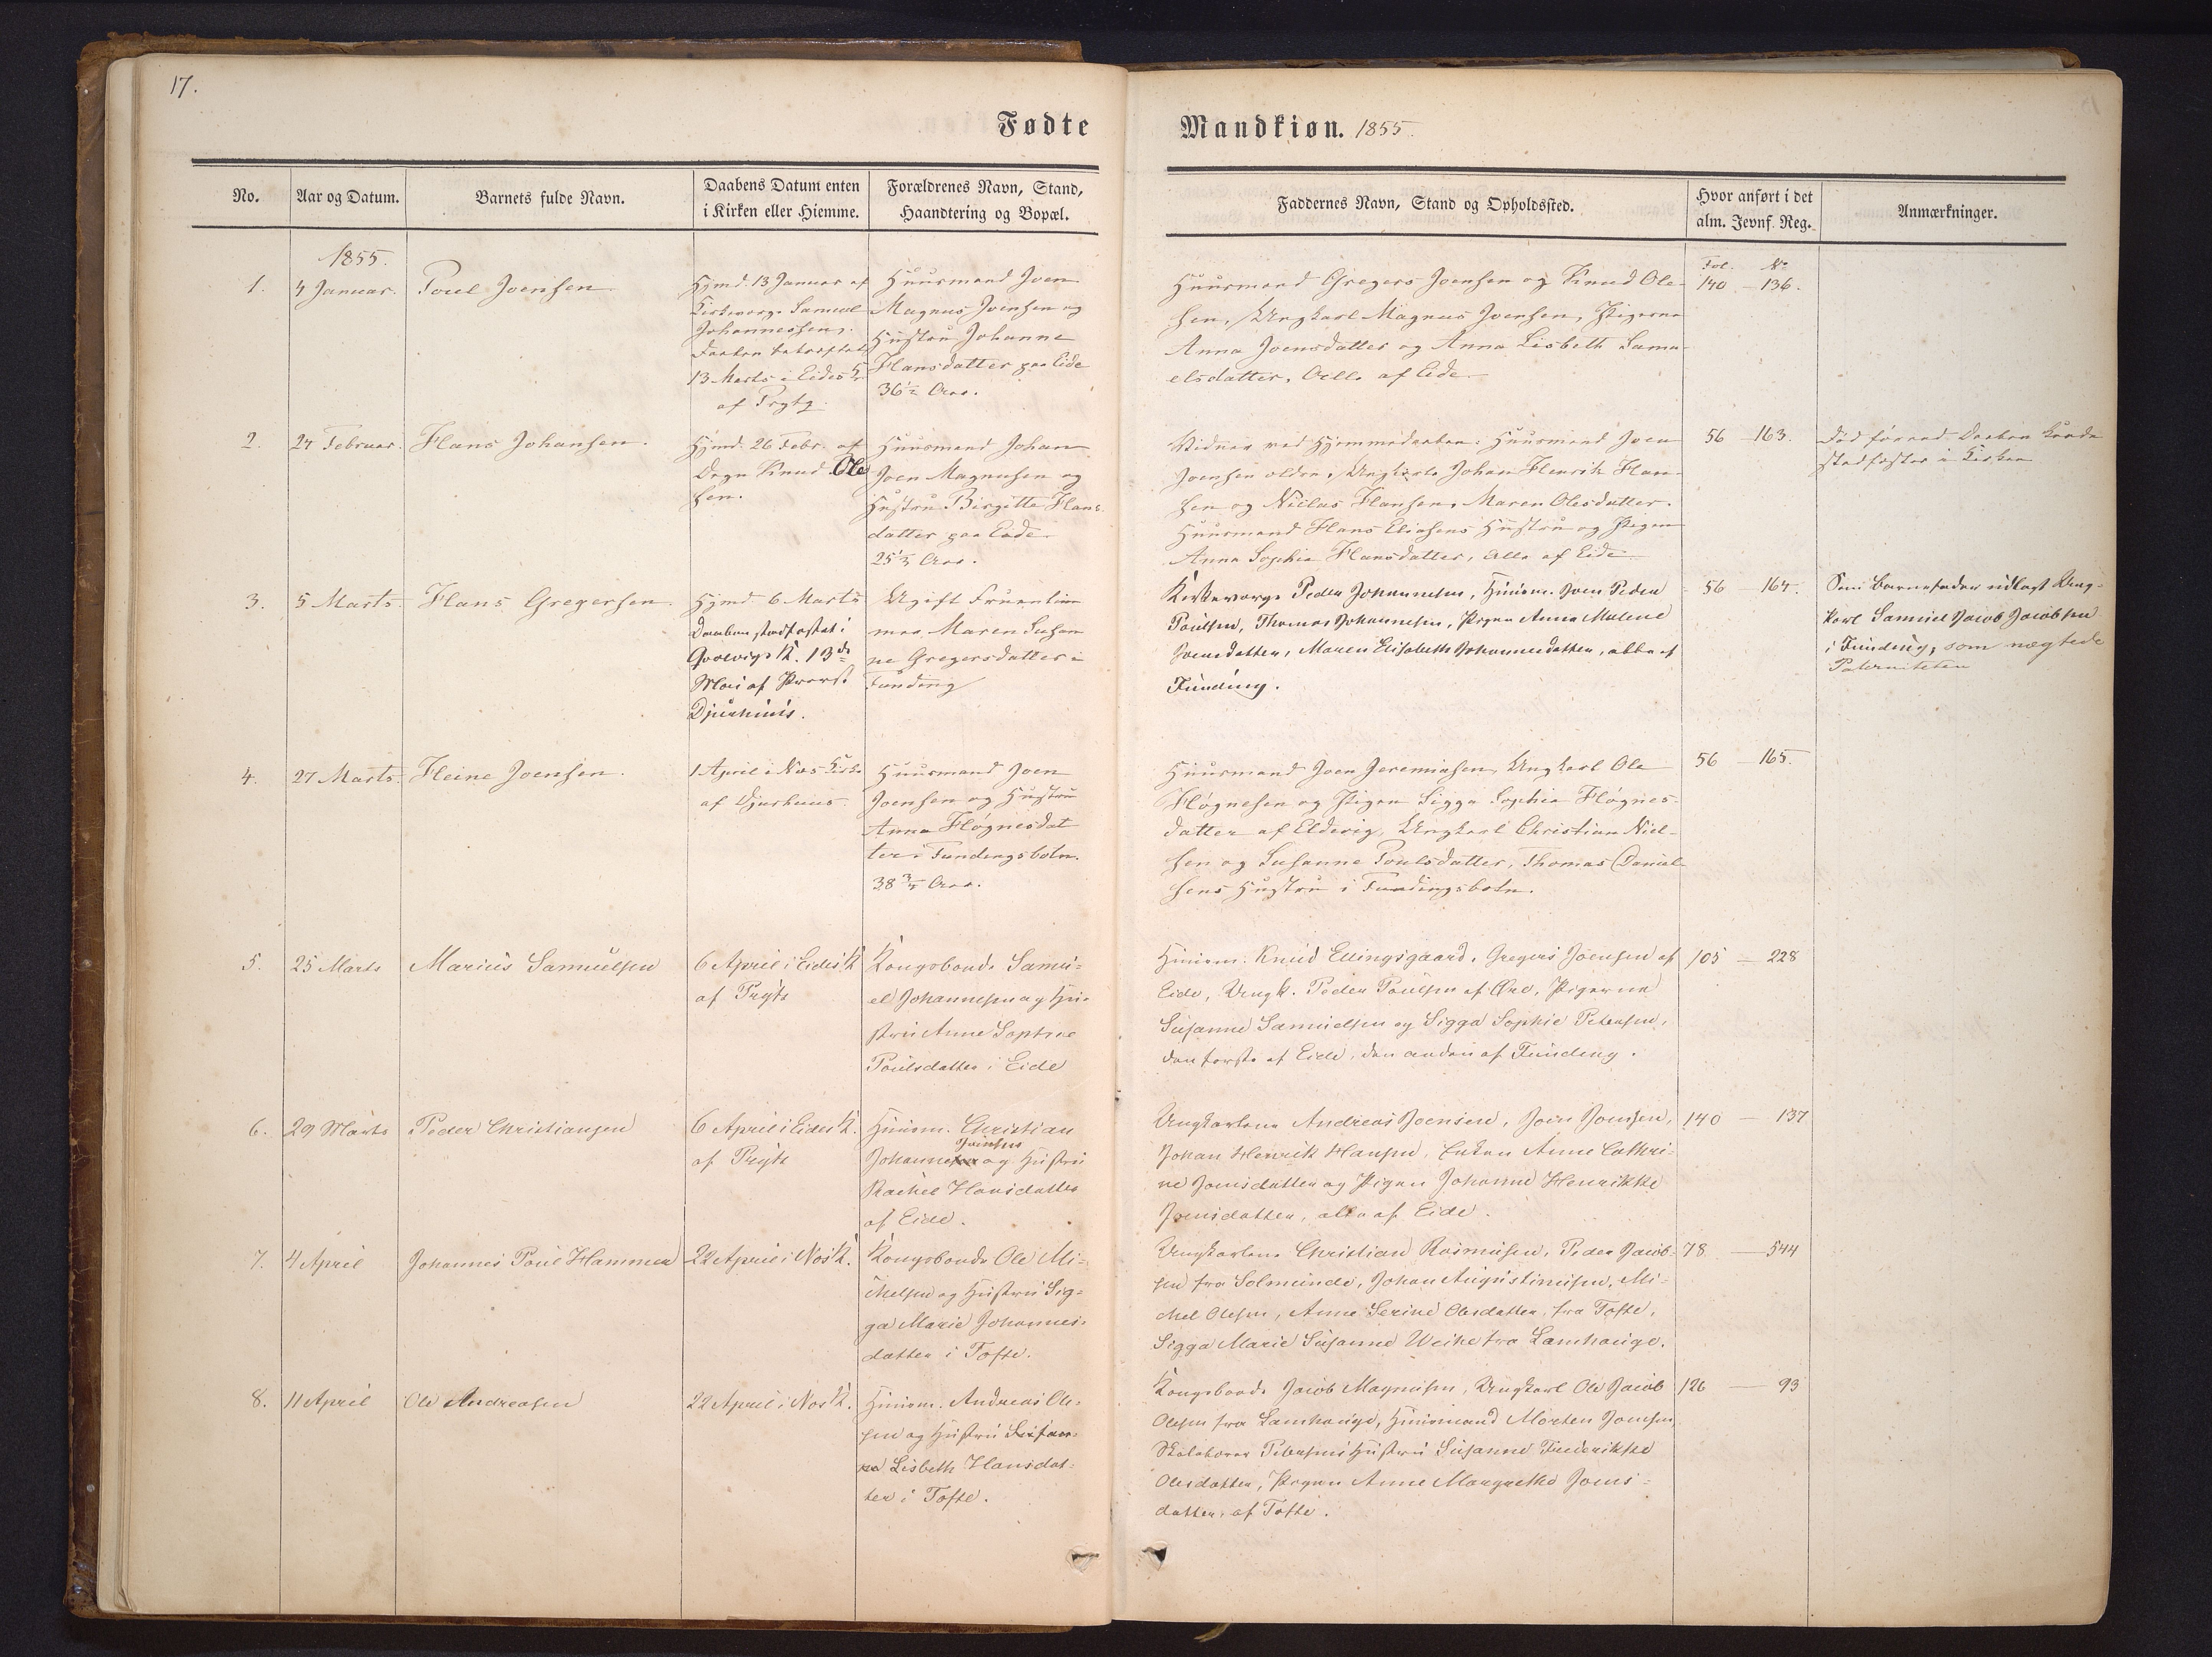 17.
Fødte
Mandkiøn. 1855.
No.
Aar og Datum.
Barnets fulde Navn.
Daabens Datum enten
i Kirken eller Hiemme.
Forældrenes Navn, Stand,
Haandtering og Bopæl.
Faddernes Navn, Stand og Opholdssted.
Hvor anført i det
alm. Jevnf. Reg.
Anmærkninger.
1855.
1.
4 Januar.
Poul Joensen
Hjmd. 13 Januar af
Kirkeværge Samuel
Johannessen.
Daaben bekræftet
13 Marts i Eides K.
af Prytz.
Huusmand Joen
Magnus Joensen og
Hustru Johanne
Hansdatter paa Eide
36½ Aar.
Huusmand Gregers Joensen og Knud Ole-
sen, Ungkarl Magnus Joensen, Pigerne
Anna Joensdatter og Anna Lisbeth Samu-
elsdatter, Alle af Eide
Fol. No
140 — 136.
2.
24 Februar.
Hans Johansen.
Hjmd. 26 Febr. af
Degn Knud Ole
sen.
Huusmand Johan
Joen Magnusen og
Hustru Birgitte Hans-
datter paa Eide
25½ Aar.
Vidner ved Hjemmedaaben: Huusmand Joen
Joensen ældre, Ungkarle Johan Henrik Han-
sen og Niclas Hansen, Maren Olesdatter.
Huusmand Hans Eliasens Hustru og Pigen
Anna Sophie Hansdatter, alle af Eide
56 — 163.
Død førend Daaben kunde
stadfæstes i Kirken
3.
5 Marts.
Hans Gregersen
Hjmd. 6 Marts
Daaben stadfæstet i
Gjovigs K. 13de
Mai af Provst
Djurhuus.
Ugift Fruentim
mer Maren Susan
ne Gregersdatter i
Funding
Kirkeværge Peder Johannesen, Huusm. Joen Peder
Poulsen, Thomas Johannesen, Pigen Anna Malene
Joensdatter, Maren Elisabeth Johannesdatter, alle af
Funding.
56 — 164.
Som Barnefader udlagt Ung-
karl Samuel Jacob Jacobsen
i Funding, som nægtede
Paterniteten
4.
27 Marts.
Heine Joensen.
1 April i Næs Kirke
af Djurhuus.
Huusmand Joen
Joensen og Hustru
Anna Høgnesdat
ter i Fundingsbotn.
38¾ Aar.
Huusmand Joen Jeremiasen, Ungkarl Ole
Høgnesen og Pigen Sigga Sophie Høgnes-
datter af Eldevig, Ungkarl Christian Niel-
sen og Susanne Poulsdatter, Thomas Daniel-
sens Hustru i Fundingsbotn.
56 — 165.
5.
25 Marts
Marius Samuelsen
6 April i Eides K
af Prytz
Kongsbonde Samu-
el Johannesen og Hu-
stru Anne Sophie
Poulsdatter i Eide
Huusm. Knud Ellingsgaard, Gregers Joensen af
Eide, Ungk. Peder Poulsen af Øre, Pigerne
Susanne Samuelsen og Sigga Sophie Petersen,
den første af Eide, den anden af Funding.
105 — 228
6.
29 Marts
Peder Christiansen
6 April i Eides K.
af Prytz
Huusm. Christian
Joensen
Johannesen og Hustru
Rachel Hansdatter
af Eide.
Ungkarlene Andreas Joensen, Joen Joensen,
Johan Henrik Hansen, Enken Anne Cathri-
ne Joensdatter og Pigen Johanne Henrikke
Joensdatter, alle af Eide.
140 — 137
7.
4 April
Johannes Poul Hammer
22 April i Næs K.
Kongsbonde Ole Mi-
chelsen og Hustru Sig-
ga Marie Johannes-
datter i Tofte.
Ungkarlene Christian Rasmusen, Peder Jacob-
sen fra Solmunde, Johan Augustinusen, Mi-
chel Olesen, Anne Serine Olesdatter, fra Tofte,
Sigga Marie Susanne Weihe fra Lamhauge.
78 — 544
8.
11 April
Ole Andreasen
22 April i Næs K.
Huusm. Andreas Ole-
sen og Hustru Susan-
na Lisbeth Hansdat-
ter i Tofte.
Kongsbonde Jacob Magnusen, Ungkarl Ole Jacob
Olesen fra Lamhauge, Huusmand Morten Joensen,
Skolelærer Petersens Hustru Susanne Frederikke
Olesdatter, Pigen Anne Margrethe Joens-
datter, af Tofte.
126 — 93